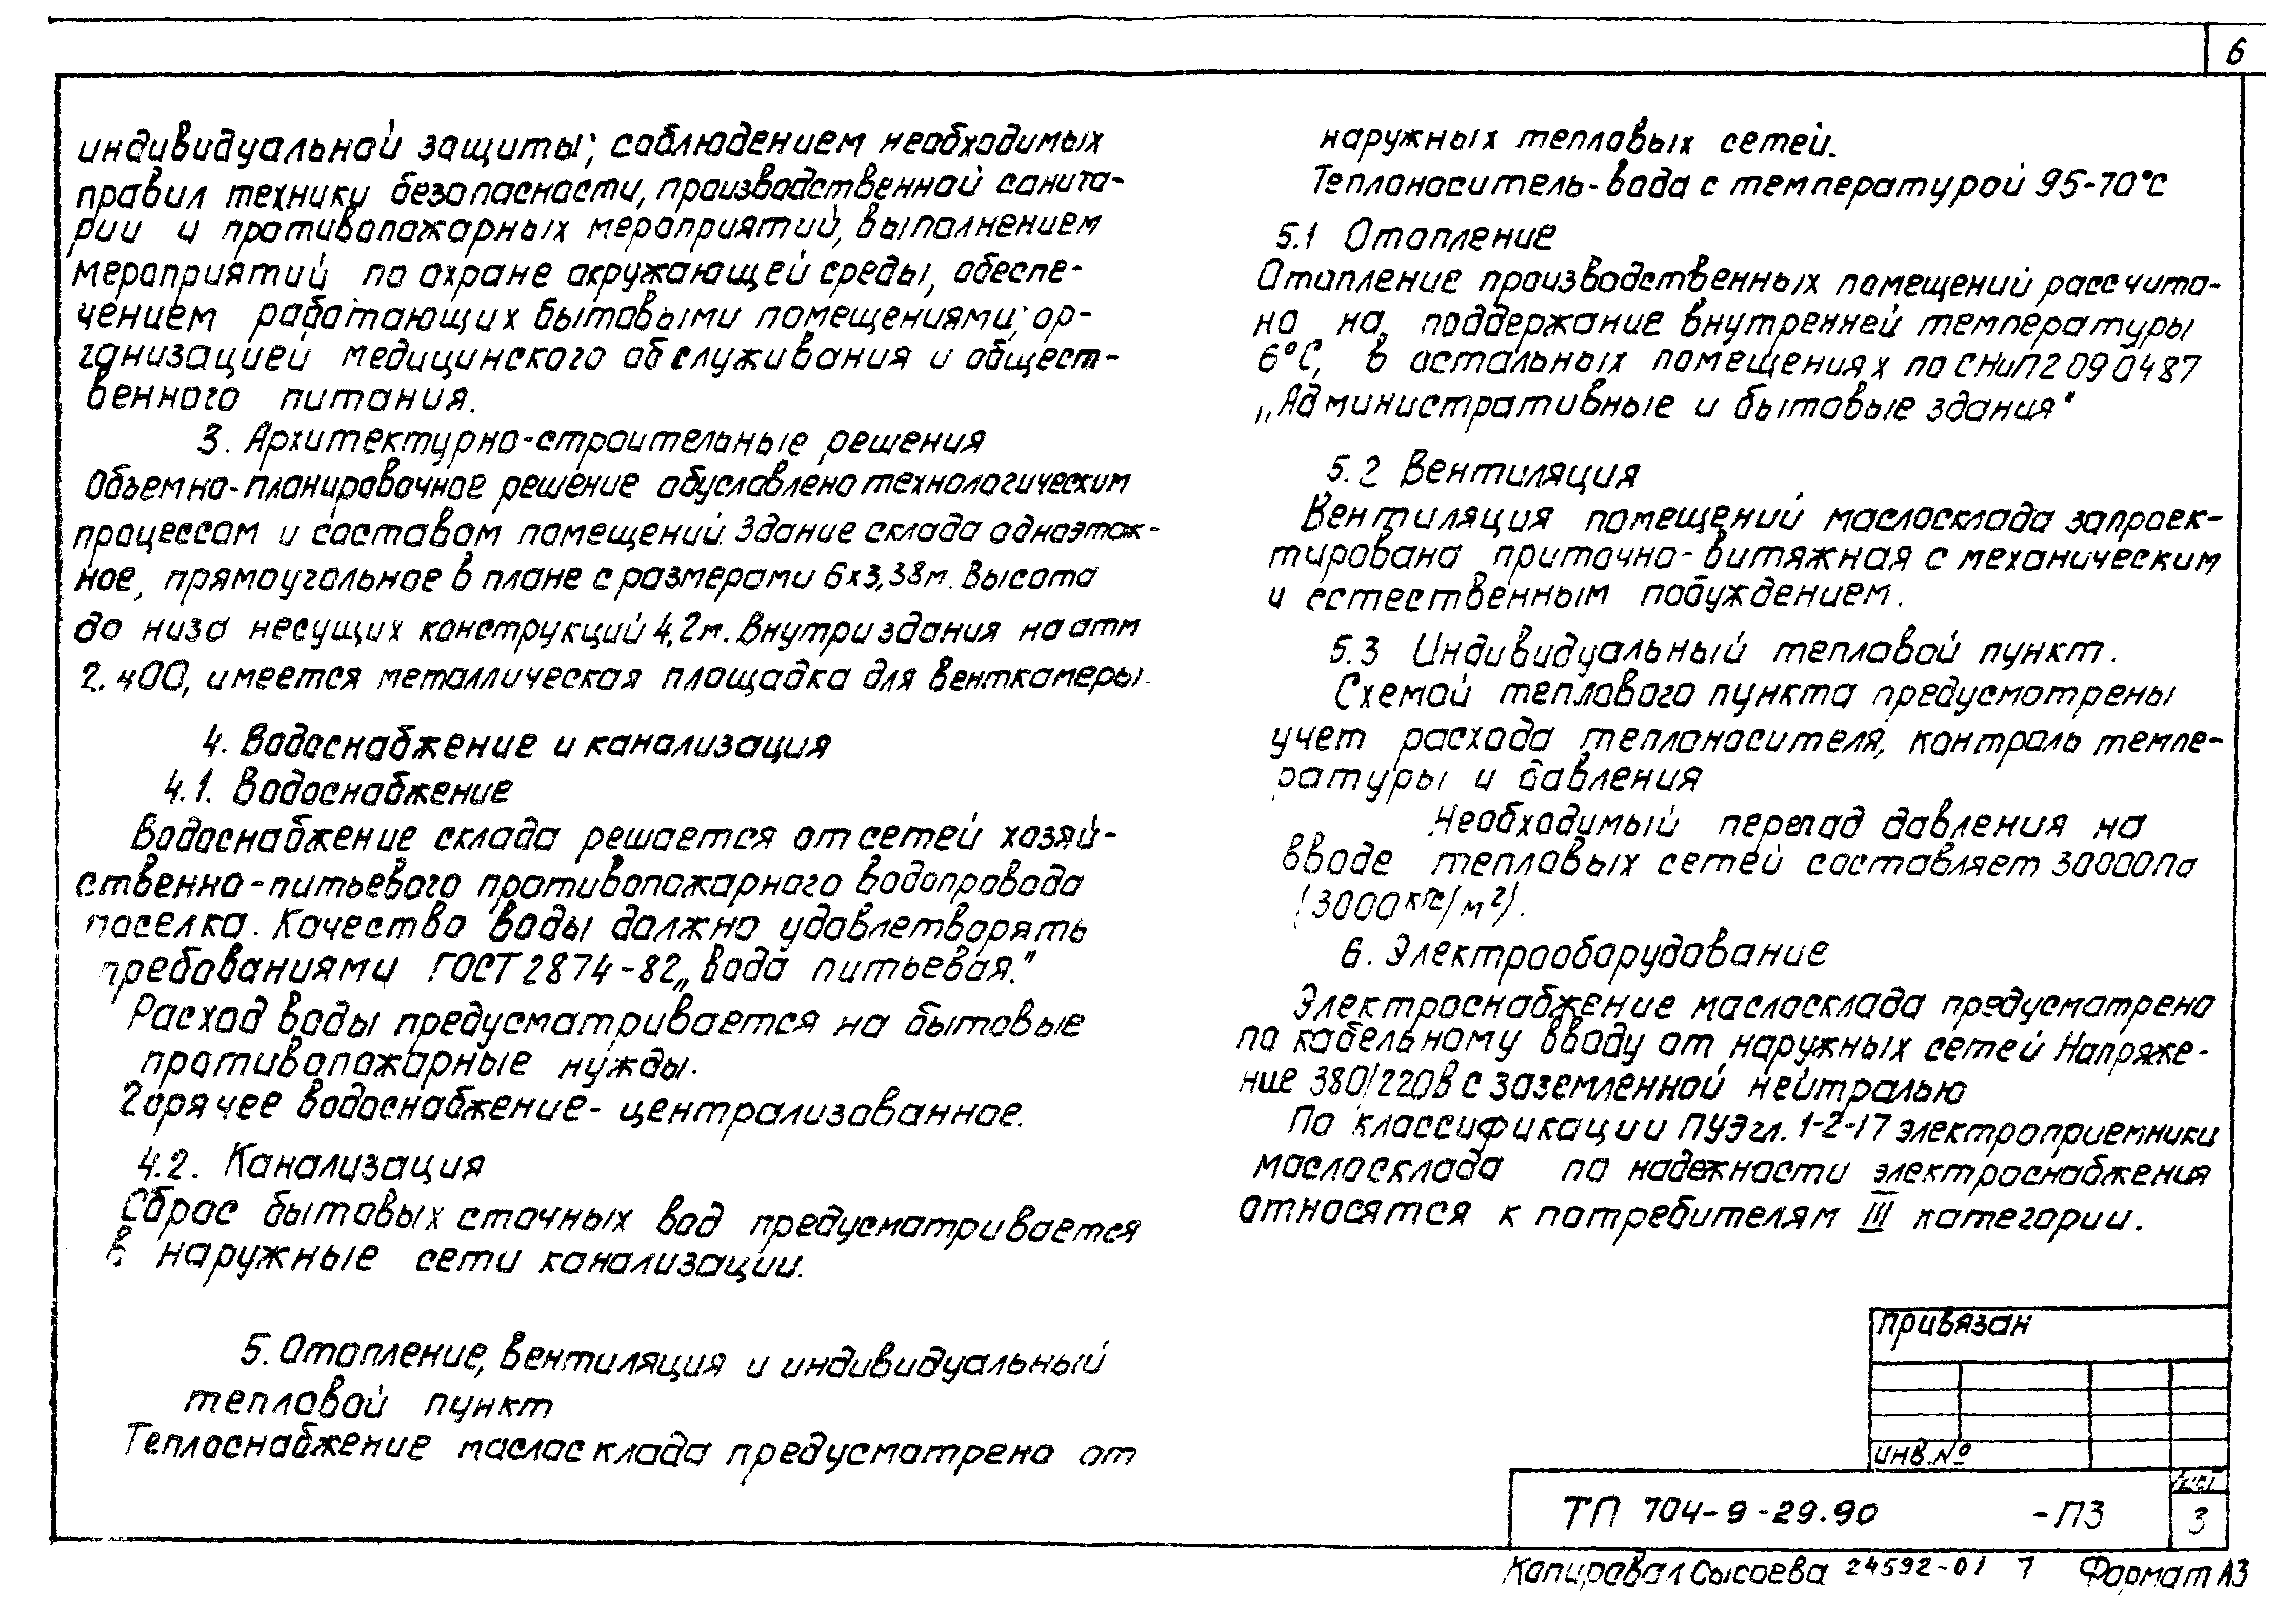 6
индивидуальной защиты; соблюдением необходимых
правил технику безопасности, производственной санита-
рии и противопожарных мероприятий, выполнением
мероприятий по охране окружающей среды, обеспе-
чением работающих бытовыми помещениями; ор-
ганизацией медицинского обслуживания и общест-
венного питания.
3. Архитектурно-строительные решения
Объемно-планировочное решение обусловлено технологическим
процессом и составом помещений. Здание склада одноэтаж-
ное, прямоугольное в плане с размерами 6х3,38м. Высота
до низа несущих конструкций 4,2м. Внутри здания на отм
2.400, имеется металлическая площадка для венткамеры.
4. Водоснабжение и канализация
4.1. Водоснабжение
Водоснабжение склада решается от сетей хозяй-
ственно-питьевого противопожарного водопровода
поселка. Качество воды должно удовлетворять
требованиями ГОСТ 2874-82 „Вода питьевая."
Расход воды предусматривается на бытовые
противопожарные нужды.
Горячее водоснабжение- централизованное.
4.2. Канализация
Сброс бытовых сточных вод предусматривается
в наружные сети канализации.
5. Отопление, вентиляция и индивидуальный
тепловой пункт
Теплоснабжение маслосклада предусмотрено от
наружных тепловых сетей.
Теплоноситель-вода с температурой 95-70°С
5.1 Отопление
Отопление производственных помещений рассчита-
но на поддержание внутренней температуры
6°С, в остальных помещениях по СНиП2 09 04 87
„Административные и бытовые здания"
5.2 Вентиляция
Вентиляция помещений маслосклада запроек-
тирована приточно-витяжная с механическим
и естественным побуждением.
5.3 Индивидуальный тепловой пункт.
Схемой теплового пункта предусмотрены
учет расхода теплоносителя, контроль темпе-
ратуры и давления
Необходимый перепад давления на
вводе тепловых сетей составляет 30000Па
(3000кгс/м²).
6. Электрооборудование
Электроснабжение маслосклада предусмотрено
по кабельному вводу от наружных сетей Напряже-
ние 380/220В с заземленной нейтралью
По классификации ПУЭ гл. 1-2-17 электроприемники
маслосклада по надежности электроснабжения
относятся к потребителям III категории.
Привязан
инв.№
лист
ТП 704-9-29.90 -ПЗ 3
Копировал Сысоева 24592-01 7 Формат А3